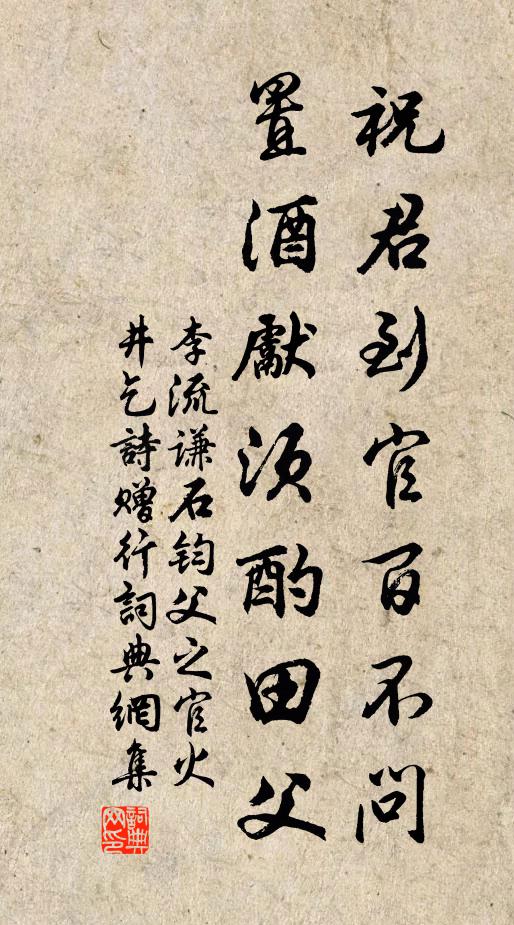 祝君到官百不问
置酒獻须酌田父
李流谦石钧父之官火
井乞詩赠行詞典網集
詞典网印